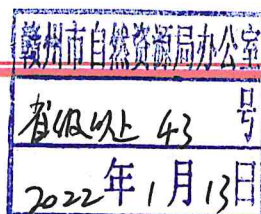 赣州市自然资源局办公室
省级以上 43 号
2022年1月13日